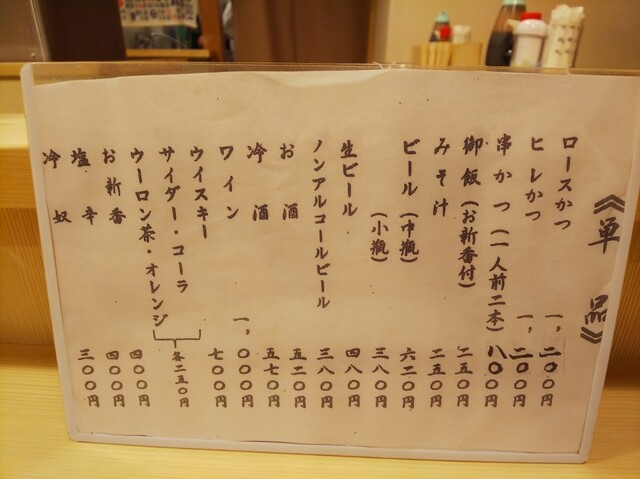 《単品》
ロースかつ 一、二〇〇円
ヒレかつ 一、二〇〇円
串かつ(一人前二本) 八〇〇円
御飯(お新香付) 二五〇円
みそ汁 二五〇円
ビール(中瓶) 六二〇円
(小瓶) 三八〇円
生ビール 四八〇円
ノンアルコールビール 三八〇円
お酒 五二〇円
冷酒 五七〇円
ワイン 一、〇〇〇円
ウイスキー 七〇〇円
サイダー・コーラ
ウーロン茶・オレンジ 各二五〇円
お新香 四〇〇円
塩辛 四〇〇円
冷奴 三〇〇円